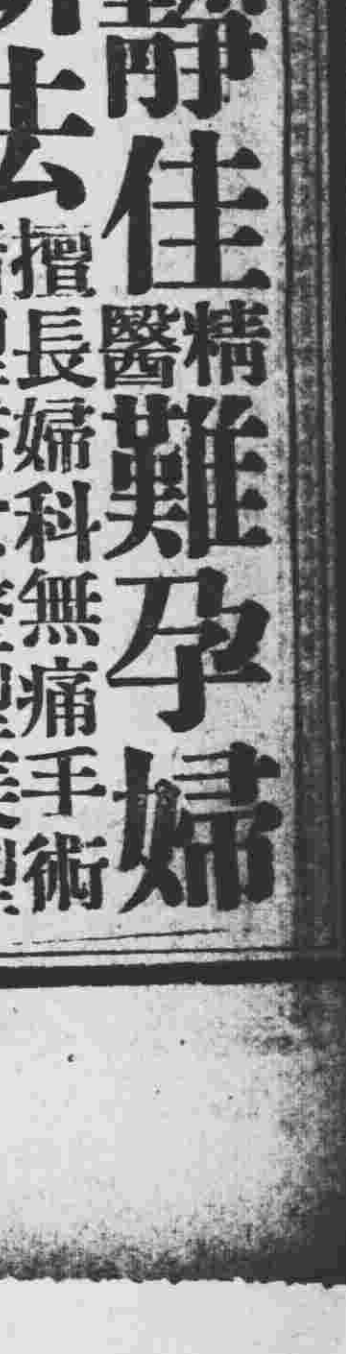 靜佳精醫難孕婦
法擅長婦科無痛手術